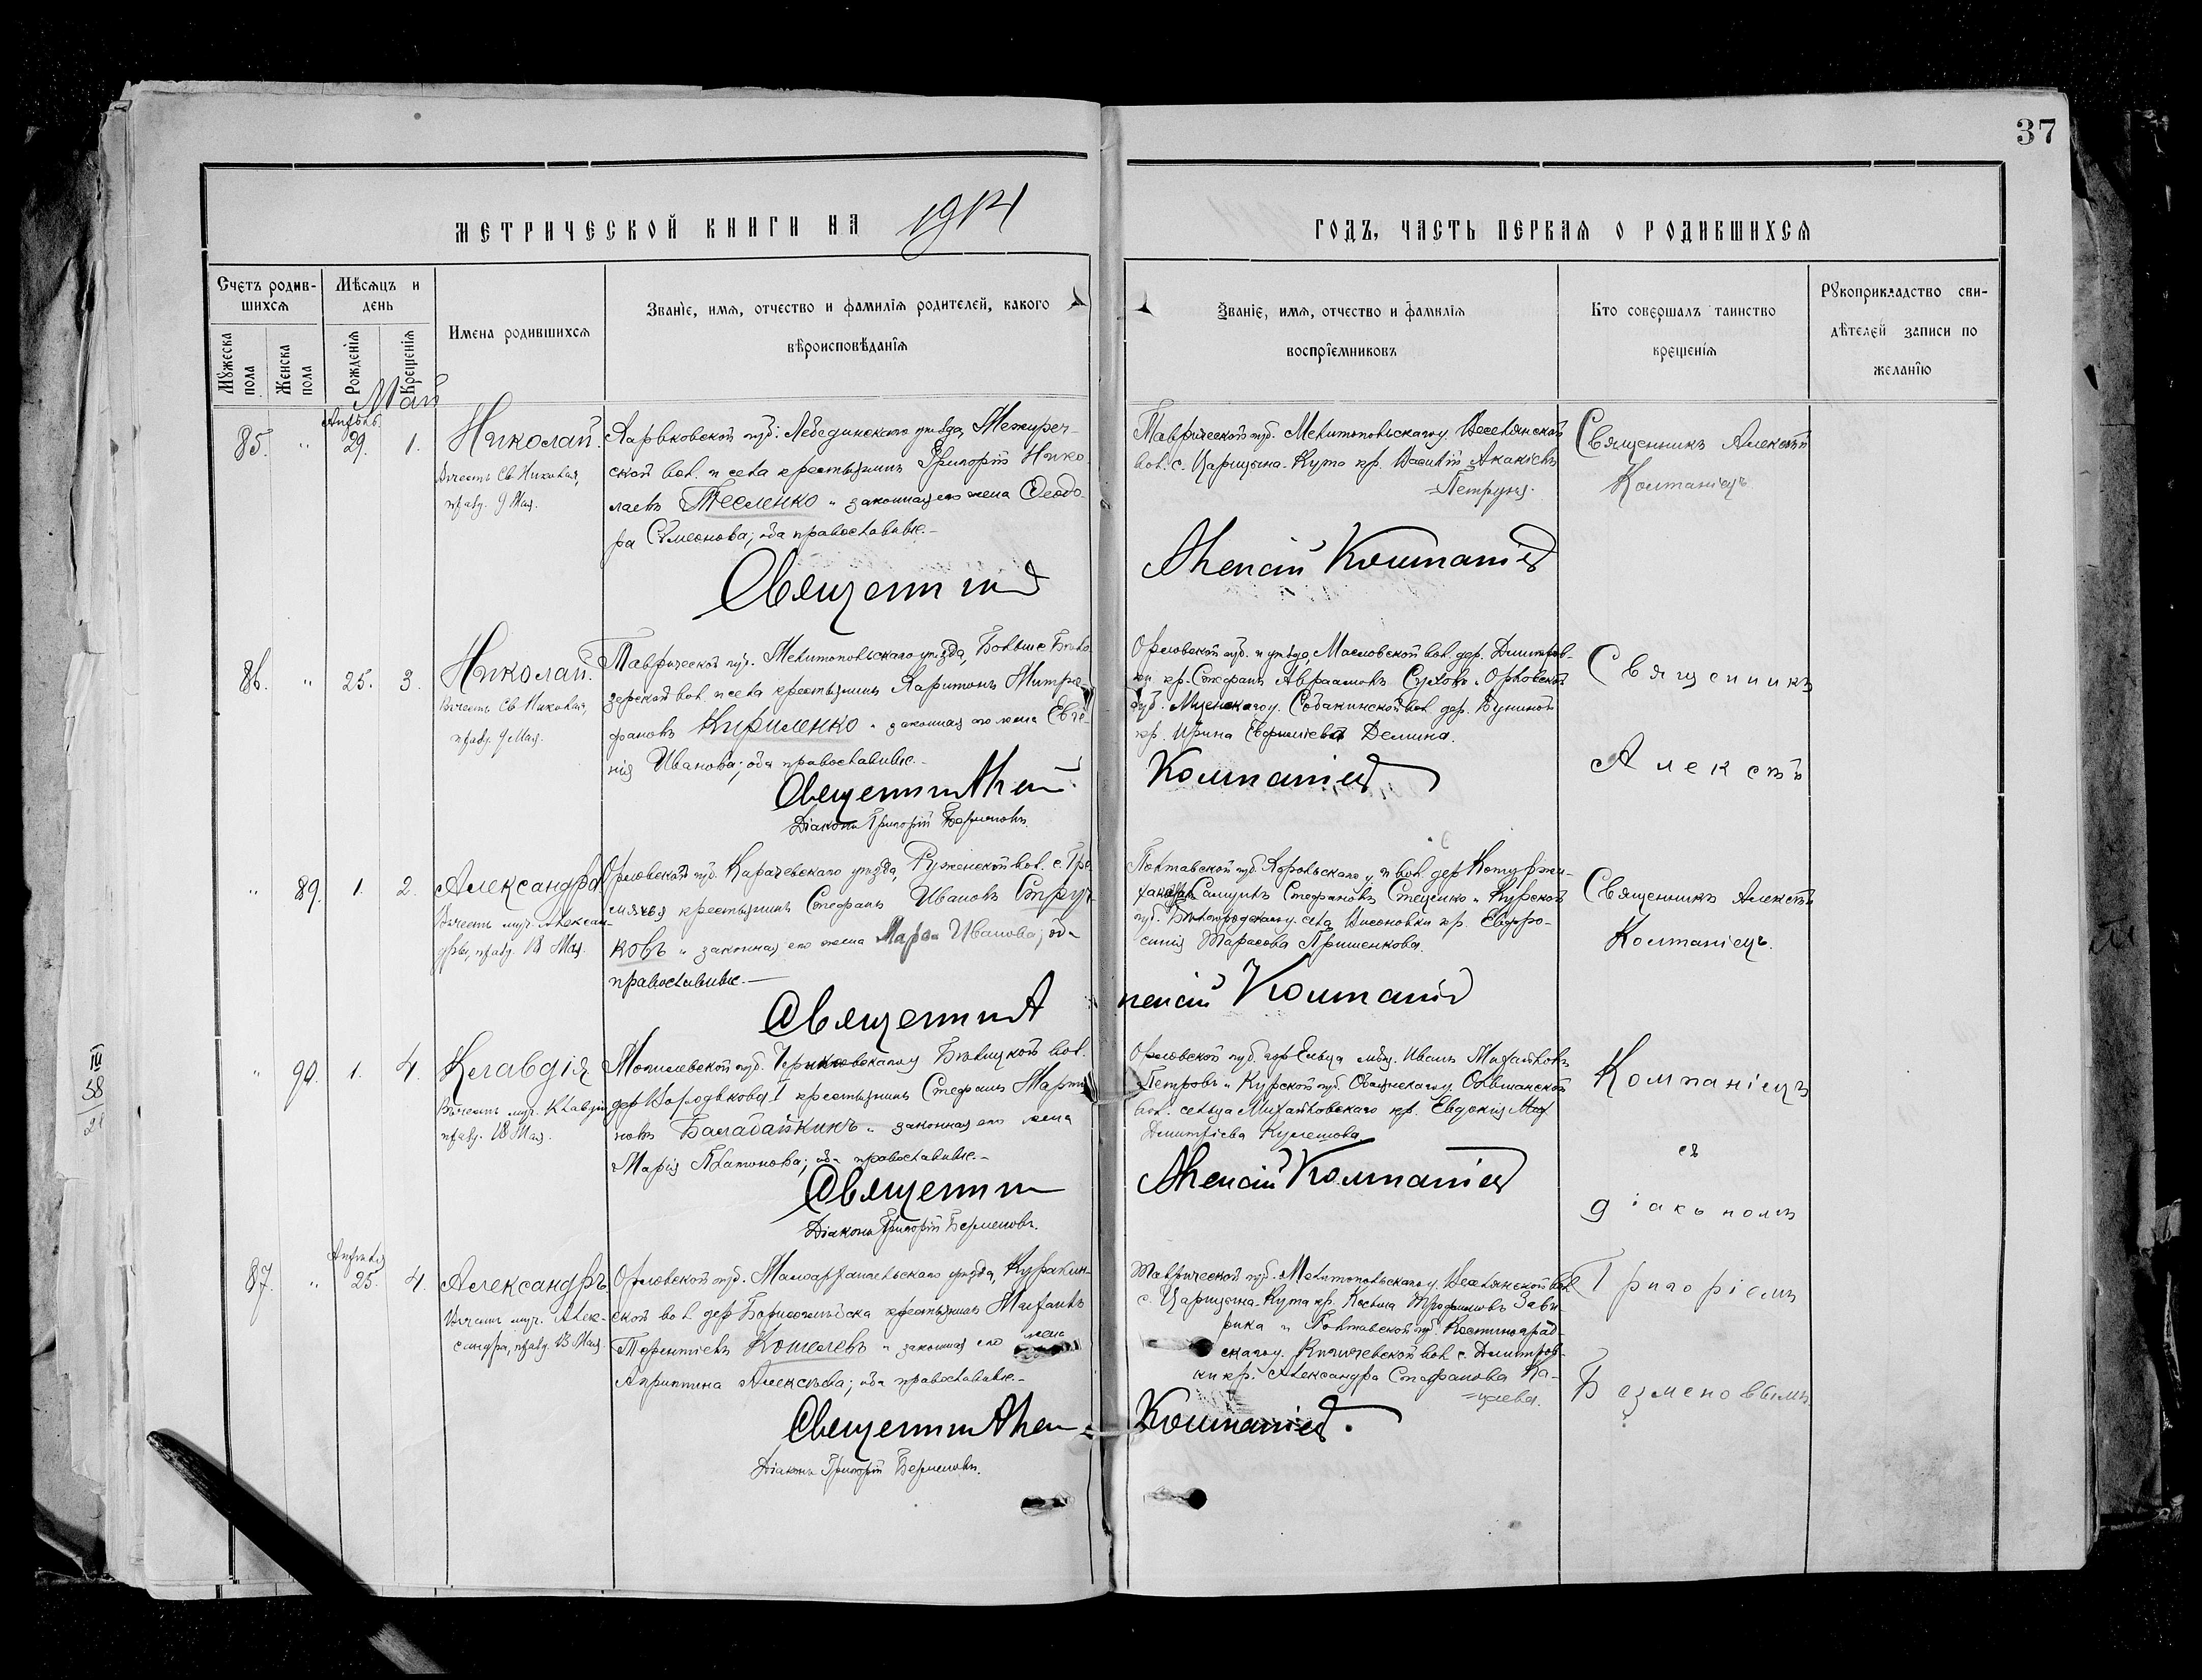 37
МЕТРИЧЕСКОЙ КНИГИ НА 1914 ГОДЪ, ЧАСТЬ ПЕРВАЯ О РОДИВШИХСЯ
Счетъ родив-
шихся
Мужеска
пола
Женска
пола
Мѣсяцъ и
день
Рожденія
Крещенія
Имена родившихся
Званіе, имя, отчество и фамилія родителей, какого
вѣроисповѣданія
Званіе, имя, отчество и фамилія
воспріемниковъ
Кто совершалъ таинство
крещенія
Рукоприкладство сви-
дѣтелей записи по
желанію
Май
85. " Апрѣль 29. 1.
Николай.
Въ честь Св. Николая,
празд. 9 Мая.
Харьковской губ. Лебединскаго уѣзда, Межиреч-
ской вол. и села крестьянинъ Григорій Нико-
лаевъ Тесленко и законная его жена Ѳеодо-
ра Симеонова; оба православные.
Таврической губ. Мелитопольскаго у. Веселянской
вол. с. Царицына-Кута кр. Василій Акакіевъ
Петруня.
Священникъ Алексѣй
Компаніецъ.
Священникъ Алексій Компаніецъ
86. " 25. 3.
Николай.
Въ честь Св. Николая,
празд. 9 Мая.
Таврической губ. Мелитопольскаго уѣзда, Больше Бѣло-
зерской вол. и села крестьянинъ Харитонъ Митро-
фановъ Кириленко и законная его жена Евге-
нія Иванова; оба православные.
Орловской губ. и уѣзда, Масловской вол. дер. Дмитров-
ки кр. Стефанъ Авраамовъ и Орловской
губ. Мценскаго у. Собакинской вол. дер. Буниной
кр. Ирина Демина.
Священникъ
Алексѣй
Священникъ Алексій Компаніецъ
Діаконъ Григорій
" 89. 1. 2.
Александра
Въ честь муч. Алексан-
дры, празд. 18 Мая.
Орловской губ. Карачевскаго уѣзда, Руженской вол. с.
крестьянинъ Стефанъ Ивановъ Струч-
ковъ и законная его жена Марѳа Иванова; оба
православные.
Полтавской губ. Хорольскаго у. и вол. дер.
Стефановъ Стеценко и Курской
губ. Бѣлгородскаго у. села кр. Евфро-
синія Тарасова Пришенкова.
Священникъ Алексѣй
Компаніецъ.
Священникъ Алексій Компаніецъ
" 90. 1. 4.
Клавдія
Въ честь муч. Клавдіи,
празд. 18 Мая.
Могилевской губ. Чериковскаго у. Бѣлицкой вол.
дер. крестьянинъ Стефанъ Марти-
новъ Баладайкинъ и законная его жена
Марія Платонова; оба православные.
Орловской губ. гор. Ельца мѣщ. Иванъ Михайловъ
Петровъ и Курской губ. Обоянскаго у. Ольшанской
вол. сельца Михайловскаго кр. Евдокія
Дмитріева Кулешова.
Компаніецъ
съ
діакономъ
Священникъ Алексій Компаніецъ
Діаконъ Григорій
87. " Апрѣля 25. 4.
Александръ
Въ честь муч. Алек-
сандра, празд. 13 Мая.
Орловской губ. Малоархангельскаго уѣзда, Куракин-
ской вол. дер. Борисоглѣбска крестьянинъ Михаилъ
Терентіевъ Кошелевъ и законная его жена
Агриппина Алексѣева; оба православные.
Таврической губ. Мелитопольскаго у. Веселянской вол.
с. Царицына-Кута кр. Косьма Трофимовъ
и Полтавской губ. Константиноград-
скаго у. вол. с. Дмитров-
ки кр. Александра Стефанова
Григоріемъ
Священникъ Алексій Компаніецъ.
Діаконъ Григорій
III
58
21